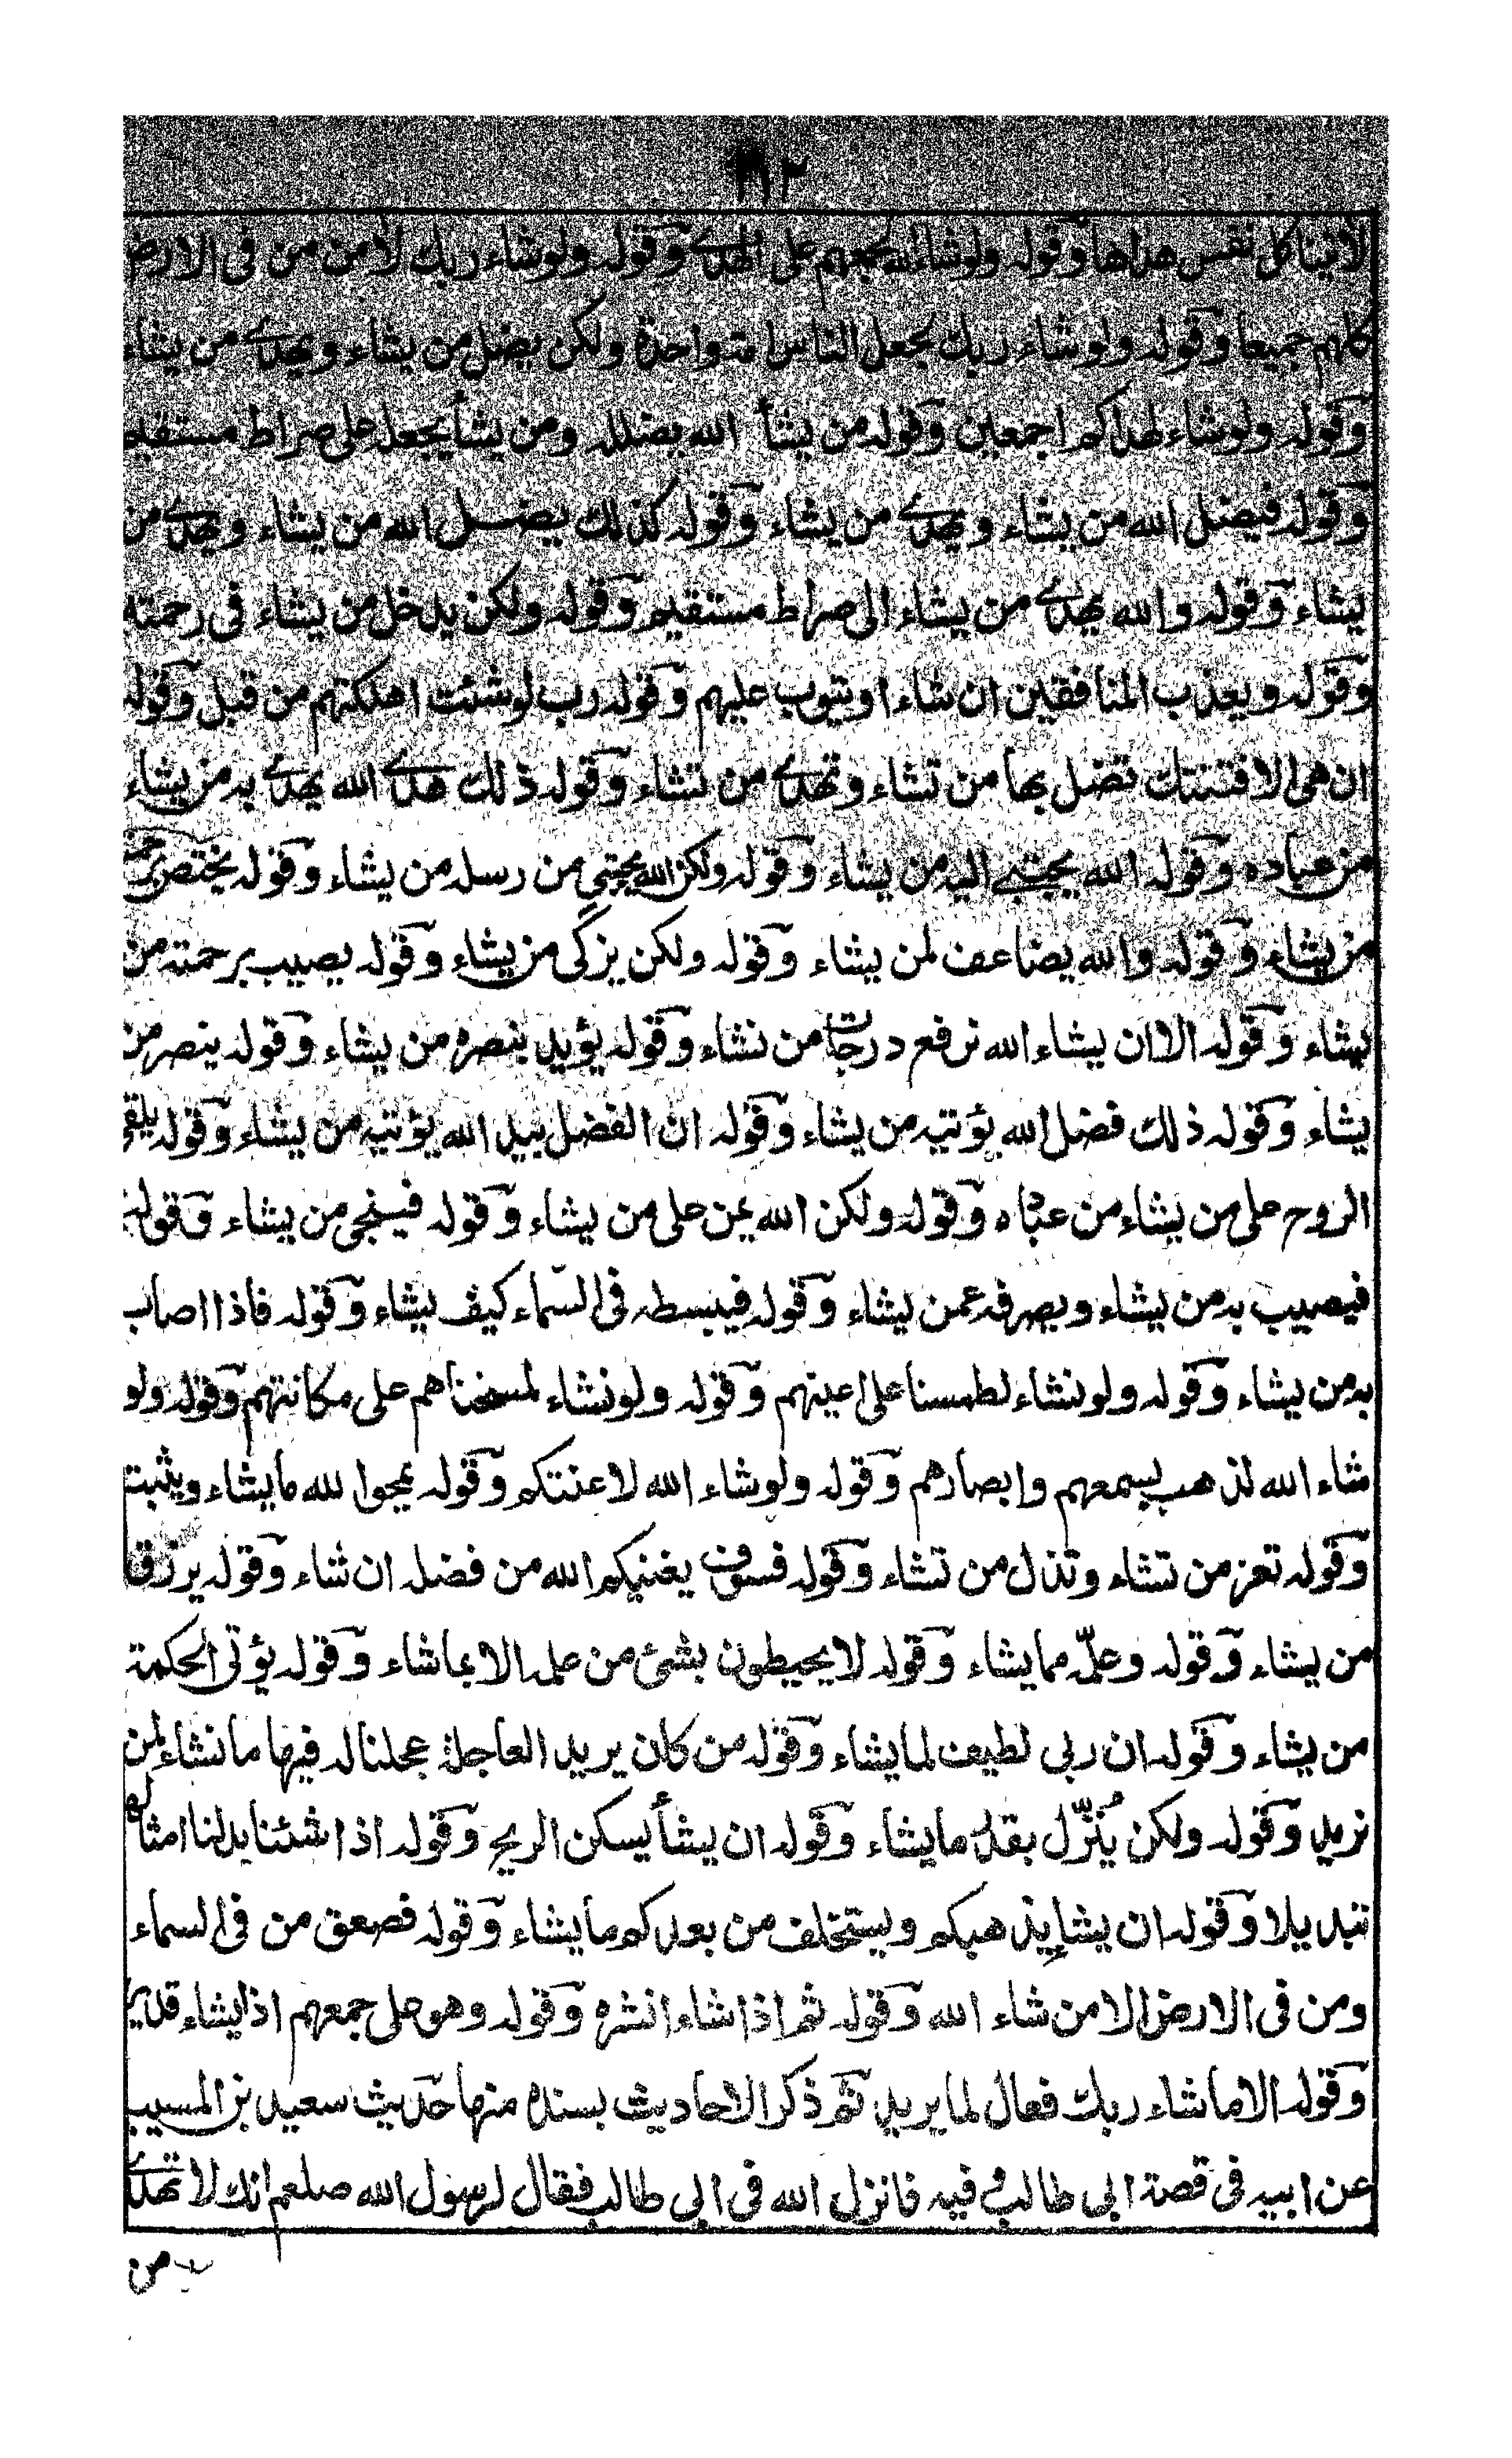 لاتينا كل نفس هداها وقوله ولو شاء الله لجمعهم على الهدى وقوله ولو شاء ربك لامن من فى الارض
كلهم جميعا وقوله ولو شاء ربك لجعل الناس امة واحدة ولكن يضل من يشاء ويهدى من يشاء
وقوله ولو شاء لهداكم اجمعين وقوله من يشأ الله يضلله ومن يشأ يجعله على صراط مستقيم
وقوله فيضل الله من يشاء ويهدى من يشاء وقوله كذلك يضل الله من يشاء ويهدى من
يشاء وقوله والله يهدى من يشاء الى صراط مستقيم وقوله ولكن يدخل من يشاء فى رحمته
وقوله ويعذب المنافقين ان شاء او يتوب عليهم وقوله رب لو شئت اهلكتهم من قبل وقوله
ان هى الا فتنتك تضل بها من تشاء وتهدى من تشاء وقوله ذلك هدى الله يهدى به من يشاء
من عباده وقوله الله يجتبى اليه من يشاء وقوله ولكن الله يجتبى من رسله من يشاء وقوله يختص برحمته
من يشاء وقوله والله يضاعف لمن يشاء وقوله ولكن يزكى من يشاء وقوله يصيب برحمته من
يشاء وقوله الا ان يشاء الله نرفع درجات من نشاء وقوله يؤيد بنصره من يشاء وقوله ينصر من
يشاء وقوله ذلك فضل الله يؤتيه من يشاء وقوله ان الفضل بيد الله يؤتيه من يشاء وقوله يلقى
الروح على من يشاء من عباده وقوله ولكن الله يمن على من يشاء وقوله فينجى من يشاء وقوله
فيصيب به من يشاء ويصرفه عمن يشاء وقوله فيبسطه فى السّماء كيف يشاء وقوله فاذا اصاب
به من يشاء وقوله ولو نشاء لطمسنا على اعينهم وقوله ولو نشاء لمسخناهم على مكانتهم وقوله ولو
شاء الله لذهب بسمعهم وابصارهم وقوله ولو شاء الله لاعنتكم وقوله يمحوا لله ما يشاء ويثبت
وقوله تعز من تشاء وتذل من تشاء وقوله فسوف يغنيكم الله من فضله ان شاء وقوله يرزق
من يشاء وقوله وعلّمه مما يشاء وقوله لا يحيطون بشئ من علمه الا بما شاء وقوله يؤتى الحكمة
من يشاء وقوله ان ربى لطيف لما يشاء وقوله من كان يريد العاجلة عجلنا له فيها ما نشاء لمن
نريد وقوله ولكن يُنَزّل بقدر ما يشاء وقوله ان يشأ يسكن الريح وقوله اذا شئنا بدلنا امثالهم
تبديلا وقوله ان يشأ يذهبكم ويستخلف من بعدكم ما يشاء وقوله فصعق من فى السماء
ومن فى الارض الا من شاء الله وقوله ثم اذا شاء انشره وقوله وهو على جمعهم اذا يشاء قدير
وقوله الا ما شاء ربك فعال لما يريد ثم ذكر الاحاديث بسنده منها حديث سعيد بن المسيب
عن ابيه فى قصة ابى طالب وفيه فانزل الله فى ابى طالب فقال لرسول الله صلعم انك لا تهدى
من